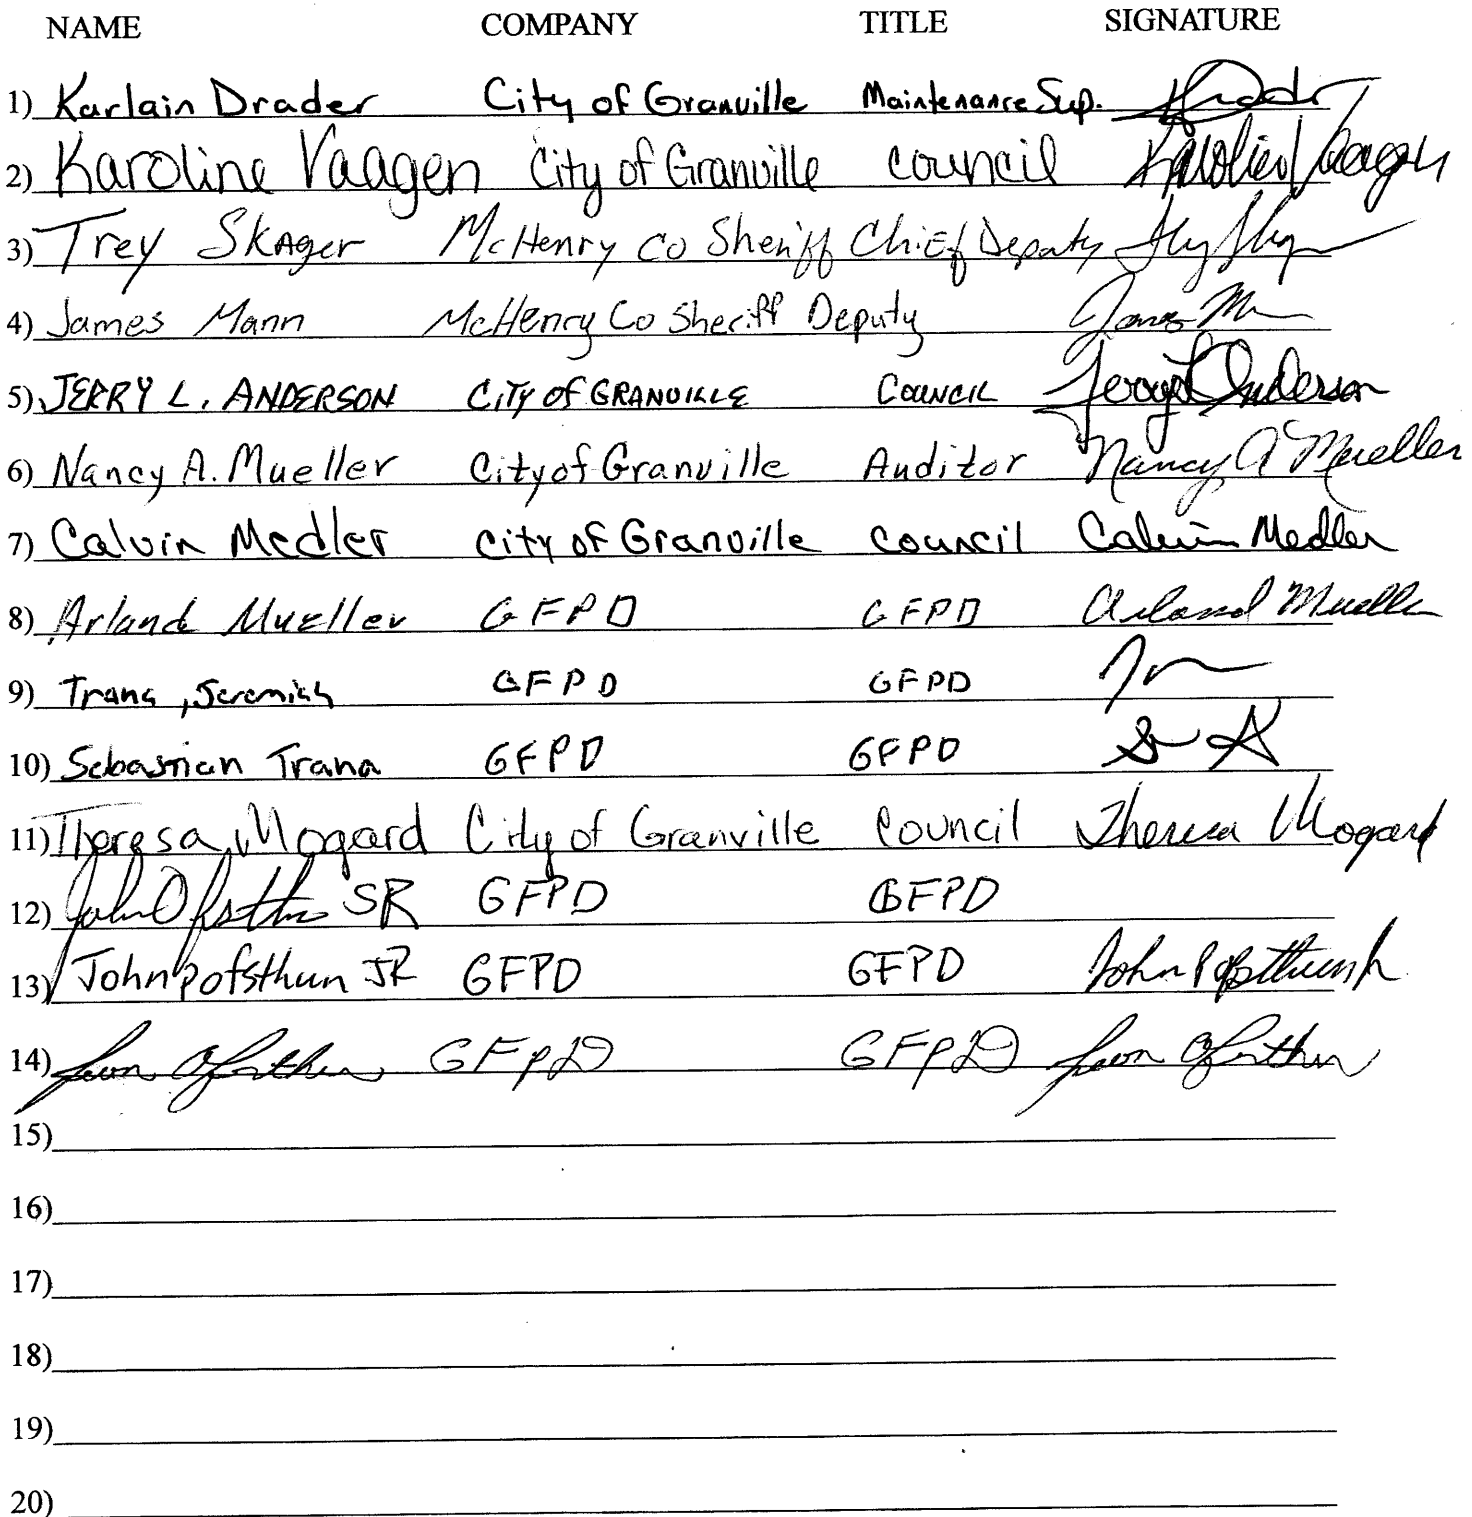 NAME COMPANY TITLE SIGNATURE
1) Karlain Drader City of Granville Maintenance Sup.
2) Karoline Vaagen City of Granville council Karoline Vaagen
3) Trey Skager McHenry Co Sheriff Chief Deputy
4) James Mann McHenry Co Sheriff Deputy James M
5) JERRY L. ANDERSON CITY OF GRANVILLE COUNCIL Jerry L Anderson
6) Nancy A. Mueller City of Granville Auditor Nancy A Mueller
7) Calvin Medler city of Granville council Calvin Medler
8) Arland Mueller GFPD GFPD Arland Mueller
9) Trana, Jeremiah GFPD GFPD
10) Sebastian Trana GFPD GFPD
11) Theresa Mogard City of Granville Council Theresa Mogard
12) John Ofsthun SR GFPD GFPD
13) John P Ofsthun JR GFPD GFPD John P Ofsthun Jr
14) Ofsthun GFPD GFPD Ofsthun
15)
16)
17)
18)
19)
20)